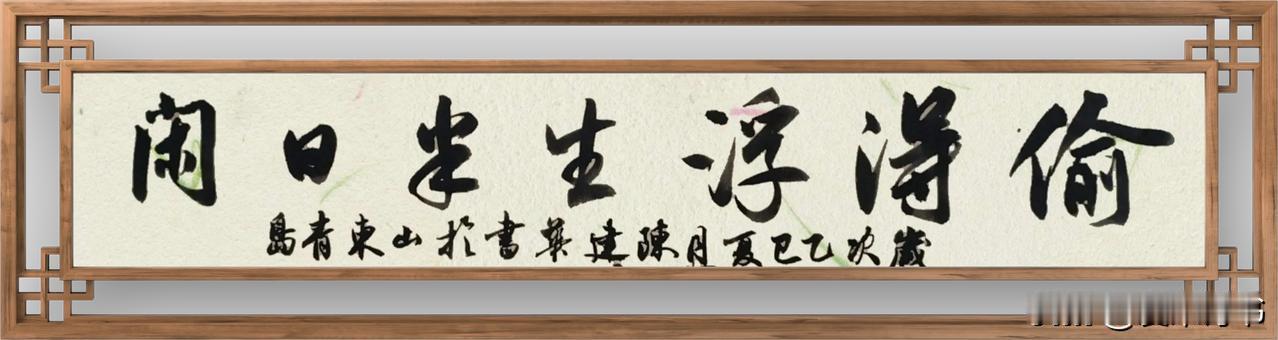 偷得浮生半日閑
歲次乙巳夏月陳建英書於山東青島